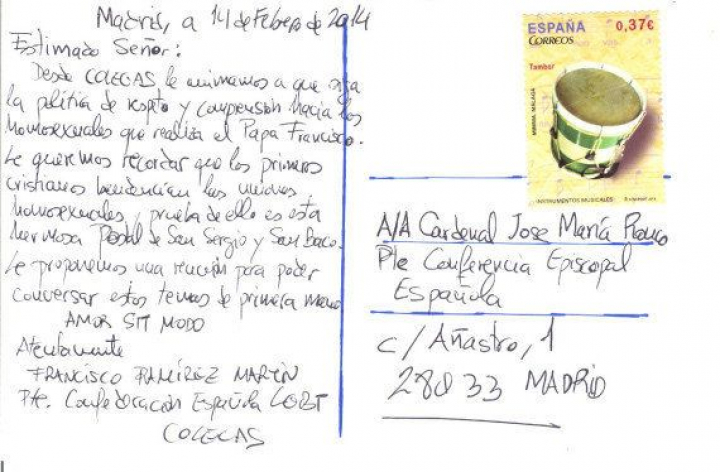 Madrid, a 14 de Febrero de 2014
Estimado Señor:
Desde COLEGAS le animamos a que siga
la política de respeto y comprensión hacia los
homosexuales que realiza el Papa Francisco.
Le queremos recordar que los primeros
cristianos bendecían las uniones
homosexuales, prueba de ello es esta
hermosa Postal de San Sergio y San Baco.
Le proponemos una reunión para poder
conversar estos temas de primera mano
AMOR SIT MODO
Atentamente
FRANCISCO RAMÍREZ MARTÍN
Pte. Confederación Española LGBT
COLEGAS
ESPAÑA 0,37€
CORREOS
Tambor
INSTRUMENTOS MUSICALES
A/A Cardenal Jose María
Pte Conferencia Episcopal
Española
c/ Añastro, 1
28033 MADRID